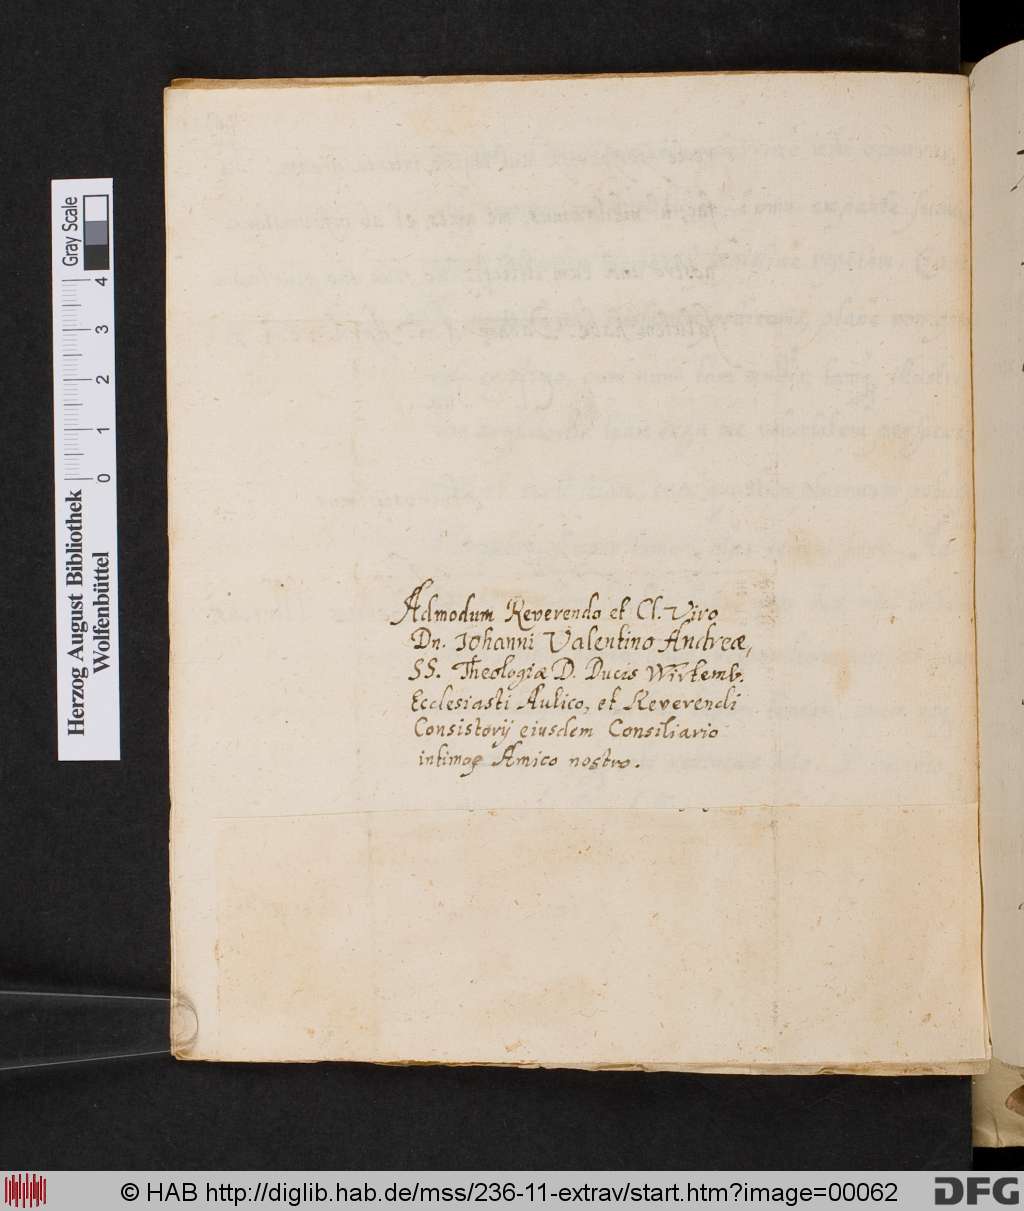 Admodum Reverendo et Cl. Viro
Dn. Iohanni Valentino Andreæ,
SS. Theologiæ D. Ducis Wirtemb.
Ecclesiasti Aulico, et Reverendi
Consistorij eiusdem Consiliario
intimoq Amico nostro.
Herzog August Bibliothek
Wolfenbüttel
0 1 2 3 4
Gray Scale
© HAB http://diglib.hab.de/mss/236-11-extrav/start.htm?image=00062
DFG